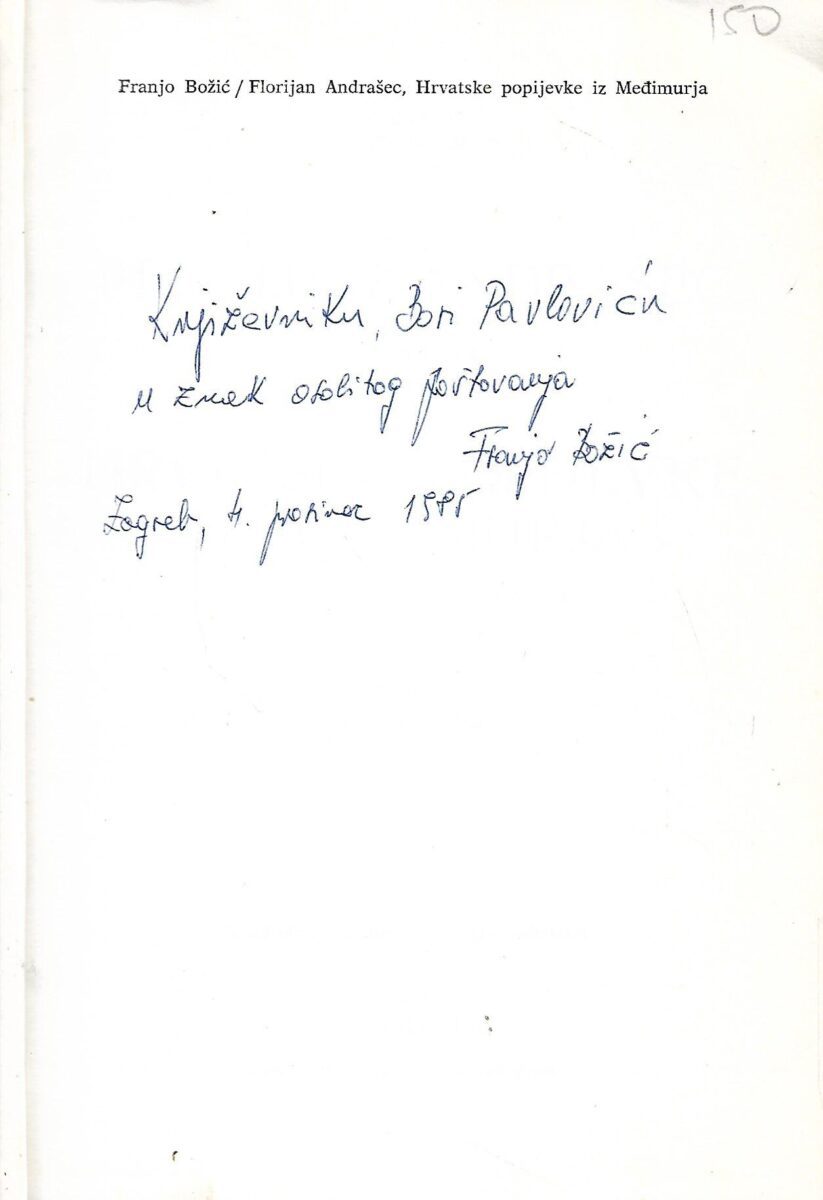 150
Franjo Božić / Florijan Andrašec, Hrvatske popijevke iz Međimurja
Književniku, Bori Pavloviću
u znak osobitog poštovanja
Franjo Božić
Zagreb, 4. prosinac 1985